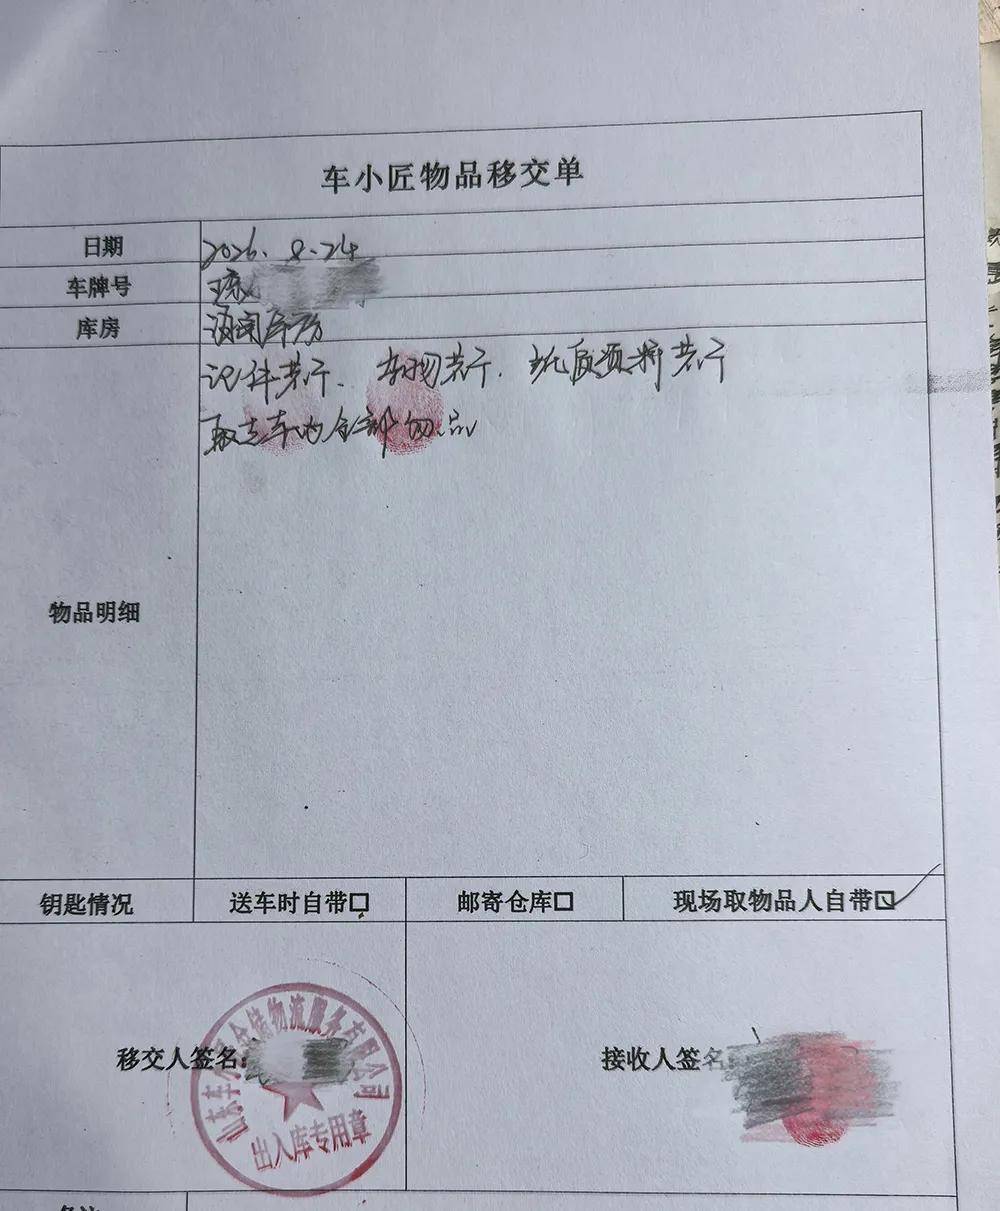 车小匠物品移交单
日期 2026.8.24
车牌号 琼
库房 海南库房
物品明细 证件若干、车物若干、纸质资料若干
取走车内全部物品
钥匙情况 送车时自带□ 邮寄仓库□ 现场取物品人自带☑
移交人签名: 接收人签名:
山东车 仓储物流服务有限公司
出入库专用章